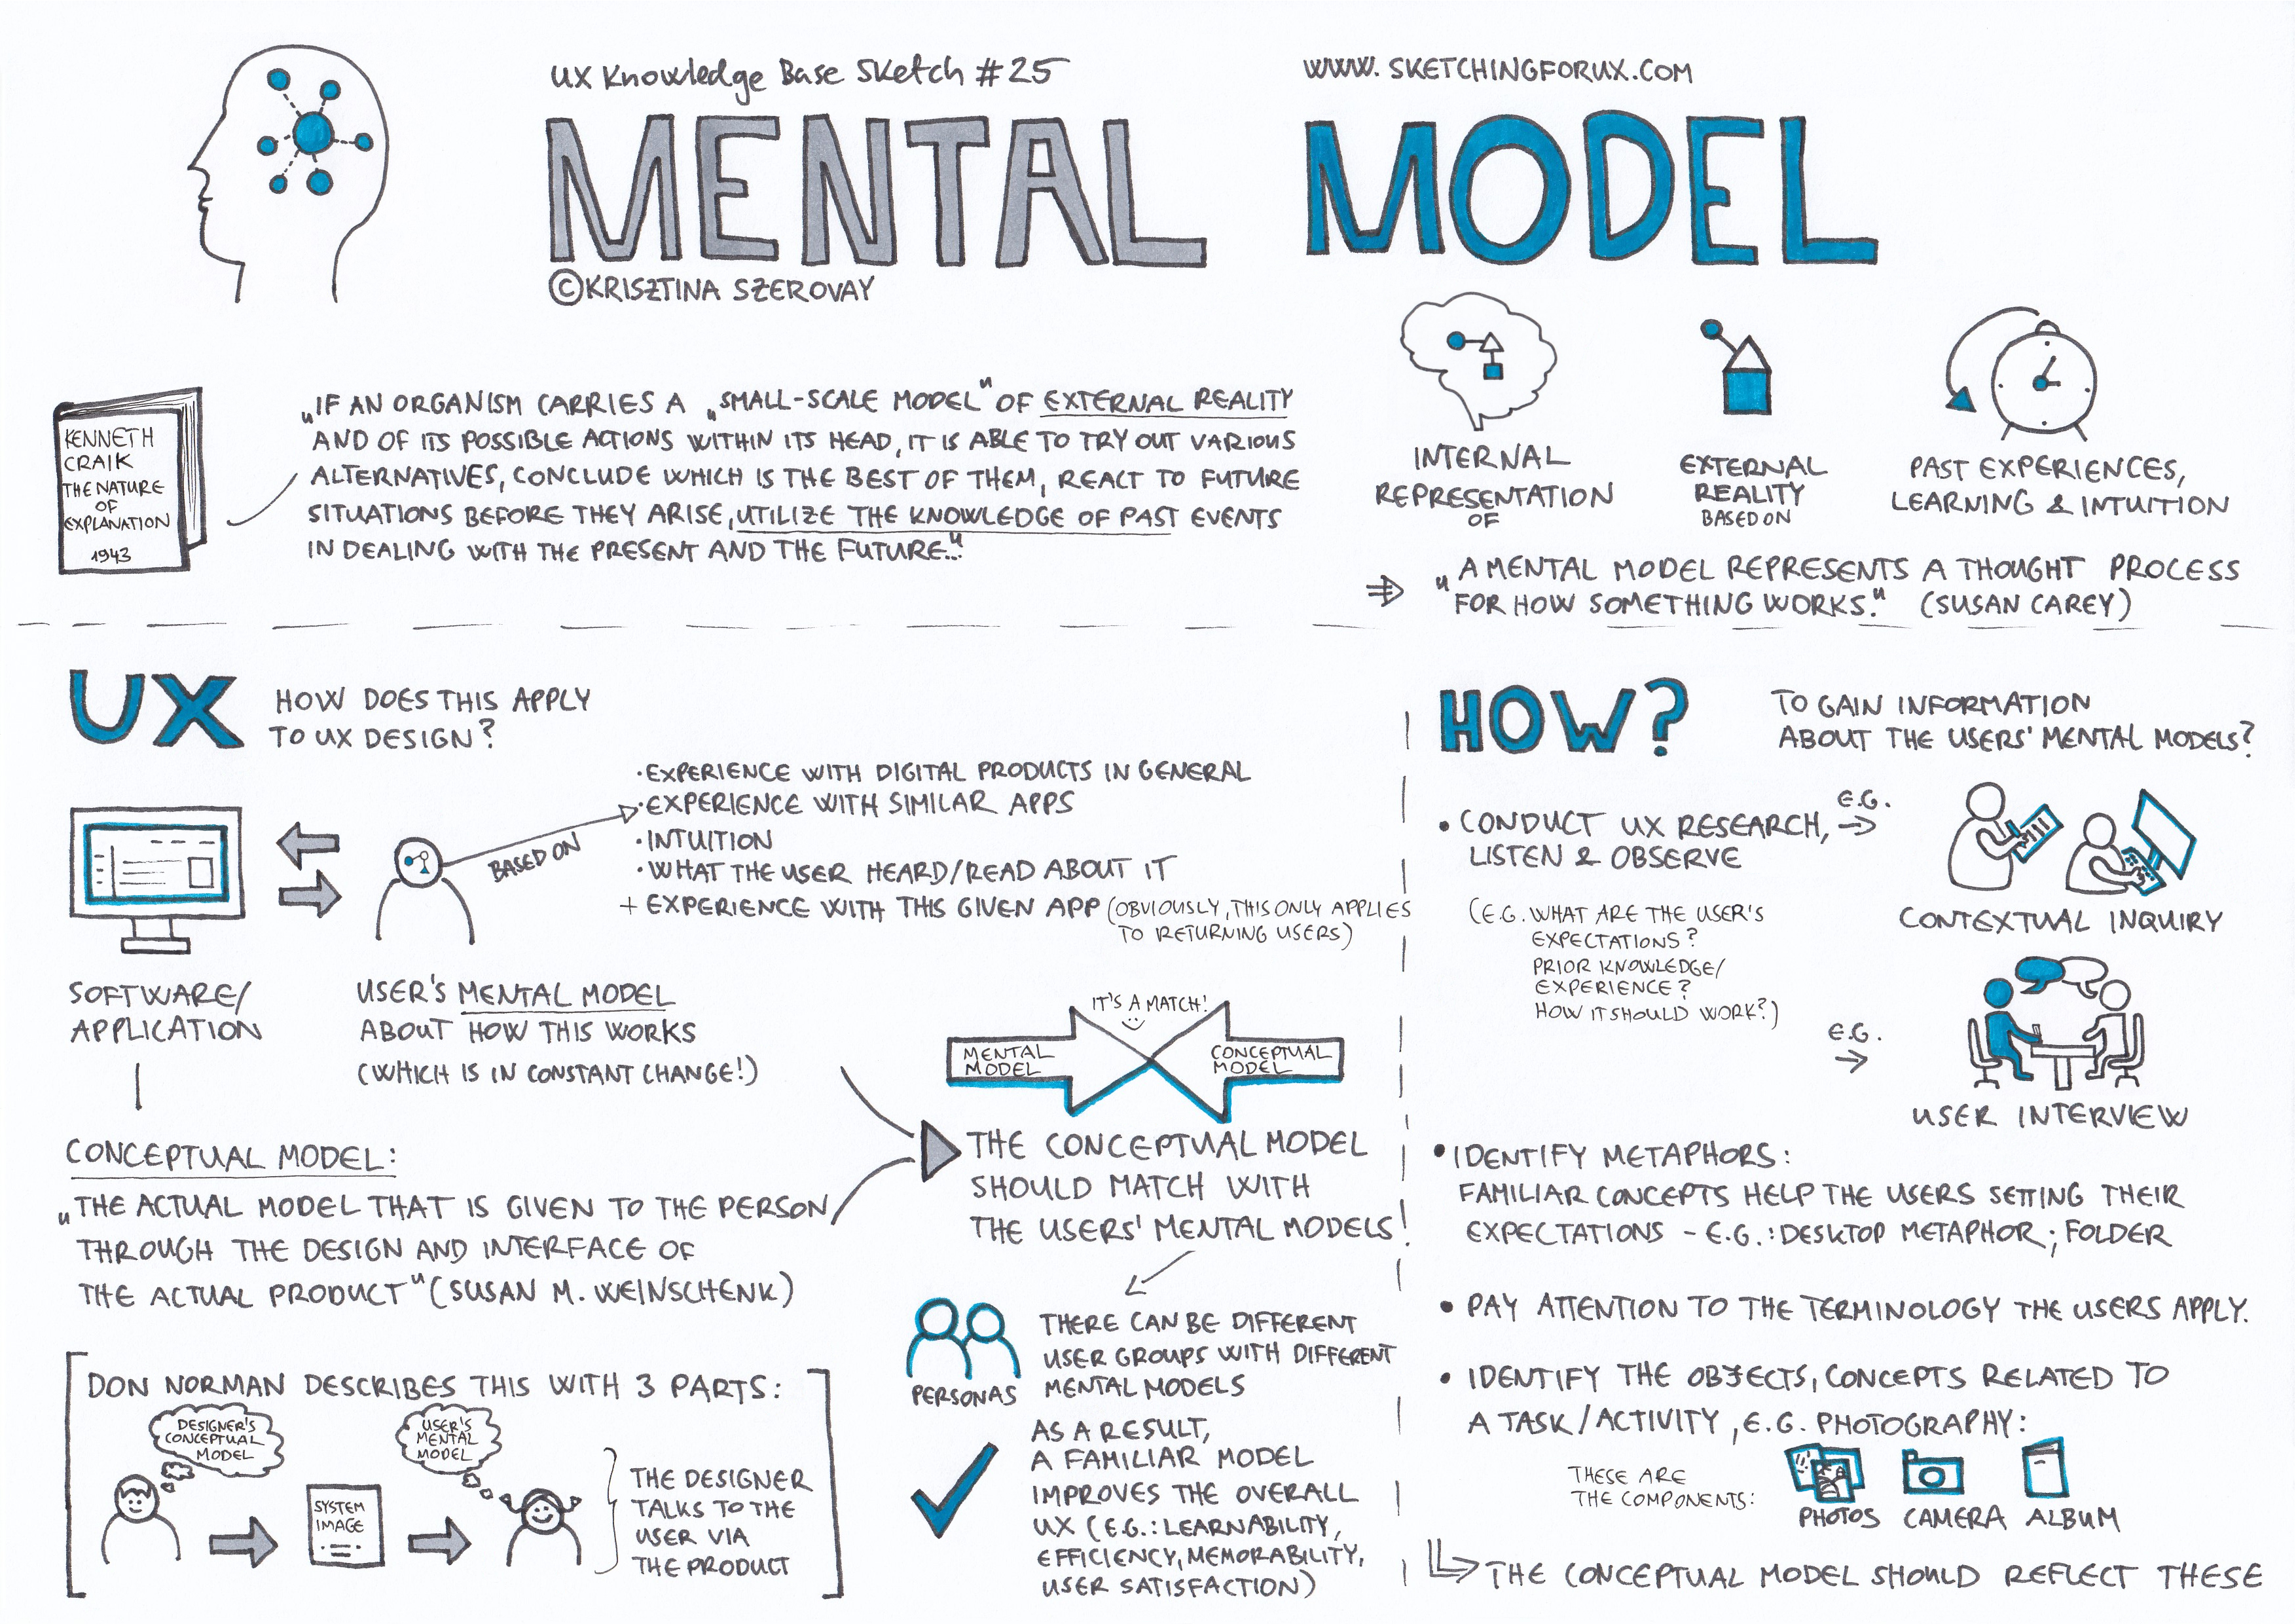 UX Knowledge Base Sketch #25
WWW.SKETCHINGFORUX.COM
MENTAL MODEL
©KRISZTINA SZEROVAY
KENNETH
CRAIK
THE NATURE
OF
EXPLANATION
1943
„IF AN ORGANISM CARRIES A „SMALL-SCALE MODEL" OF EXTERNAL REALITY
AND OF ITS POSSIBLE ACTIONS WITHIN ITS HEAD, IT IS ABLE TO TRY OUT VARIOUS
ALTERNATIVES, CONCLUDE WHICH IS THE BEST OF THEM, REACT TO FUTURE
SITUATIONS BEFORE THEY ARISE, UTILIZE THE KNOWLEDGE OF PAST EVENTS
IN DEALING WITH THE PRESENT AND THE FUTURE..."
INTERNAL
REPRESENTATION
OF
EXTERNAL
REALITY
BASED ON
PAST EXPERIENCES,
LEARNING & INTUITION
„A MENTAL MODEL REPRESENTS A THOUGHT PROCESS
FOR HOW SOMETHING WORKS." (SUSAN CAREY)
UX
HOW DOES THIS APPLY
TO UX DESIGN?
BASED ON
•EXPERIENCE WITH DIGITAL PRODUCTS IN GENERAL
•EXPERIENCE WITH SIMILAR APPS
•INTUITION
•WHAT THE USER HEARD/READ ABOUT IT
+ EXPERIENCE WITH THIS GIVEN APP (OBVIOUSLY, THIS ONLY APPLIES
TO RETURNING USERS)
SOFTWARE/
APPLICATION
USER'S MENTAL MODEL
ABOUT HOW THIS WORKS
(WHICH IS IN CONSTANT CHANGE!)
CONCEPTUAL MODEL:
„THE ACTUAL MODEL THAT IS GIVEN TO THE PERSON
THROUGH THE DESIGN AND INTERFACE OF
THE ACTUAL PRODUCT" (SUSAN M. WEINSCHENK)
IT'S A MATCH!
MENTAL
MODEL
CONCEPTUAL
MODEL
THE CONCEPTUAL MODEL
SHOULD MATCH WITH
THE USERS' MENTAL MODELS!
PERSONAS
THERE CAN BE DIFFERENT
USER GROUPS WITH DIFFERENT
MENTAL MODELS
AS A RESULT,
A FAMILIAR MODEL
IMPROVES THE OVERALL
UX (E.G.: LEARNABILITY,
EFFICIENCY, MEMORABILITY,
USER SATISFACTION)
DON NORMAN DESCRIBES THIS WITH 3 PARTS:
DESIGNER'S
CONCEPTUAL
MODEL
SYSTEM
IMAGE
USER'S
MENTAL
MODEL
THE DESIGNER
TALKS TO THE
USER VIA
THE PRODUCT
HOW?
TO GAIN INFORMATION
ABOUT THE USERS' MENTAL MODELS?
• CONDUCT UX RESEARCH,
LISTEN & OBSERVE
E.G.
CONTEXTUAL INQUIRY
(E.G. WHAT ARE THE USER'S
EXPECTATIONS?
PRIOR KNOWLEDGE/
EXPERIENCE?
HOW IT SHOULD WORK?)
E.G.
USER INTERVIEW
• IDENTIFY METAPHORS:
FAMILIAR CONCEPTS HELP THE USERS SETTING THEIR
EXPECTATIONS - E.G.: DESKTOP METAPHOR; FOLDER
• PAY ATTENTION TO THE TERMINOLOGY THE USERS APPLY.
• IDENTIFY THE OBJECTS, CONCEPTS RELATED TO
A TASK/ACTIVITY, E.G. PHOTOGRAPHY:
THESE ARE
THE COMPONENTS:
PHOTOS CAMERA ALBUM
THE CONCEPTUAL MODEL SHOULD REFLECT THESE